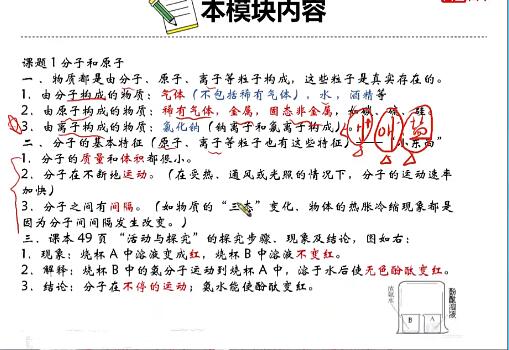 本模块内容
课题1分子和原子
一、物质都是由分子、原子、离子等粒子构成，这些粒子是真实存在的。
1．由分子构成的物质：气体（不包括稀有气体），水，酒精等
2．由原子构成的物质：稀有气体，金属，固态非金属，如碳、硫、硅。
3．由离子构成的物质：氯化钠（钠离子和氯离子构成）。
二、分子的基本特征（原子、离子等粒子也有这些特征）
1．分子的质量和体积都很小。
2．分子在不断地运动。（在受热、通风或光照的情况下，分子的运动速率
加快）
3．分子之间有间隔。（如物质的“三态”变化、物体的热胀冷缩现象都是
因为分子间间隔发生改变。）
三、课本49页“活动与探究”的探究步骤、现象及结论，图如右：
1．现象：烧杯A中溶液变成红，烧杯B中溶液不变红。
2．解释：烧杯B中的氨分子运动到烧杯A中，溶于水后使无色酚酞变红。
3．结论：分子在不停的运动；氨水能使酚酞变红。
浓氨水
B A
酚酞溶液